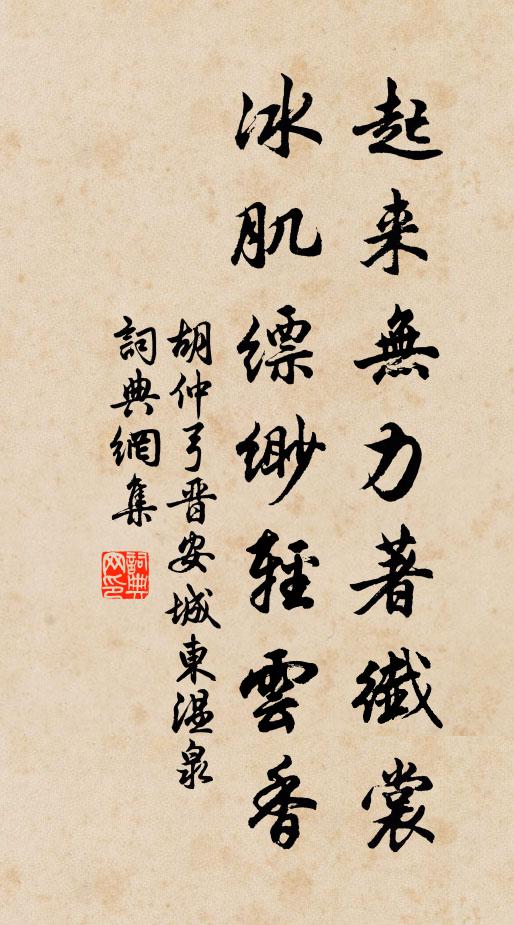 起来無力著纖裳
冰肌缥缈輕雲香
胡仲弓晋安城東温泉
詞典網集
詞典网印